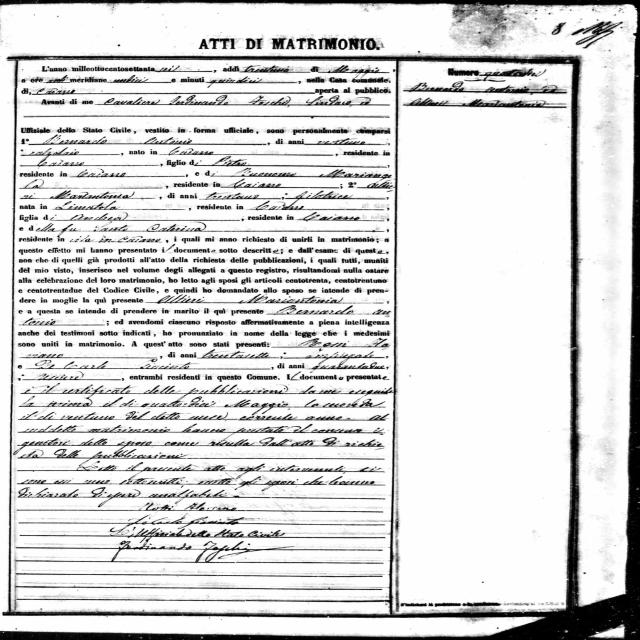 8
ATTI DI MATRIMONIO.
L'anno milleottocentosettanta sei, addì trentuno di Maggio
a ore meridiane undici e minuti quindici, nella Casa comunale
di Caiazzo aperta al pubblico.
Avanti di me Cavaliere Ferdinando Sindaco, ed
Uffiziale dello Stato Civile, vestito in forma uffiziale, sono personalmente comparsi
1° Bernardo Antonio, di anni ventuno
calzolaio, nato in Caiazzo, residente in
Caiazzo, figlio di Pietro
residente in Caiazzo, e di Buonomo Mariange
la, residente in Caiazzo; 2°
Mariantonia, di anni trentuno, filatrice
nata in Limatola residente in Caiazzo
figlia di Andrea, residente in Caiazzo
e della fu Santo Caterina
residente in vita in Caiazzo, i quali mi anno richiesto di unirli in matrimonio; a
questo effetto mi hanno presentato i document sotto descritti; e dall'esame di quest
non che di quelli già prodotti all'atto della richiesta delle pubblicazioni, i quali tutti, muniti
del mio visto, inserisco nel volume degli allegati a questo registro, risultandomi nulla ostare
alla celebrazione del loro matrimonio, ho letto agli sposi gli articoli centotrenta, centotrentuno
e centotrentadue del Codice Civile, e quindi ho domandato allo sposo se intende di pren-
dere in moglie la quì presente Mariantonia
e a questa se intende di prendere in marito il quì presente Bernardo An
tonio; ed avendomi ciascuno risposto affermativamente a piena intelligenza
anche dei testimoni sotto indicati, ho pronunziato in nome della legge che i medesimi
sono uniti in matrimonio. A quest'atto sono stati presenti:
, di anni trentasette, impiegato
e De Carlo Giacinto, di anni quarantadue
usciere, entrambi residenti in questo Comune. I document presentat
è il certificato delle pubblicazioni da me eseguite
la prima il dì quattordici Maggio, la seconda
il dì ventuno del detto mese corrente anno. Al
suddetto matrimonio hanno prestato il consenso i
genitori dello sposo come risulta dall'atto di richie
sta delle pubblicazioni
Letto il presente atto agli intervenuti, si
sono con me sottoscritti, meno gli sposi che hanno
dichiarato di essere analfabeti.
L'Uffiziale dello Stato Civile
Ferdinando
Numero quattordici
Bernardo Antonio, ed
Mariantonia